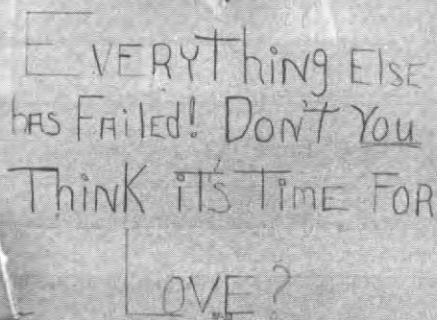 EVERYThiNg ElSE
hAS FAilEd! DON'T YOU
ThiNK iT'S TimE FOR
LOVE?